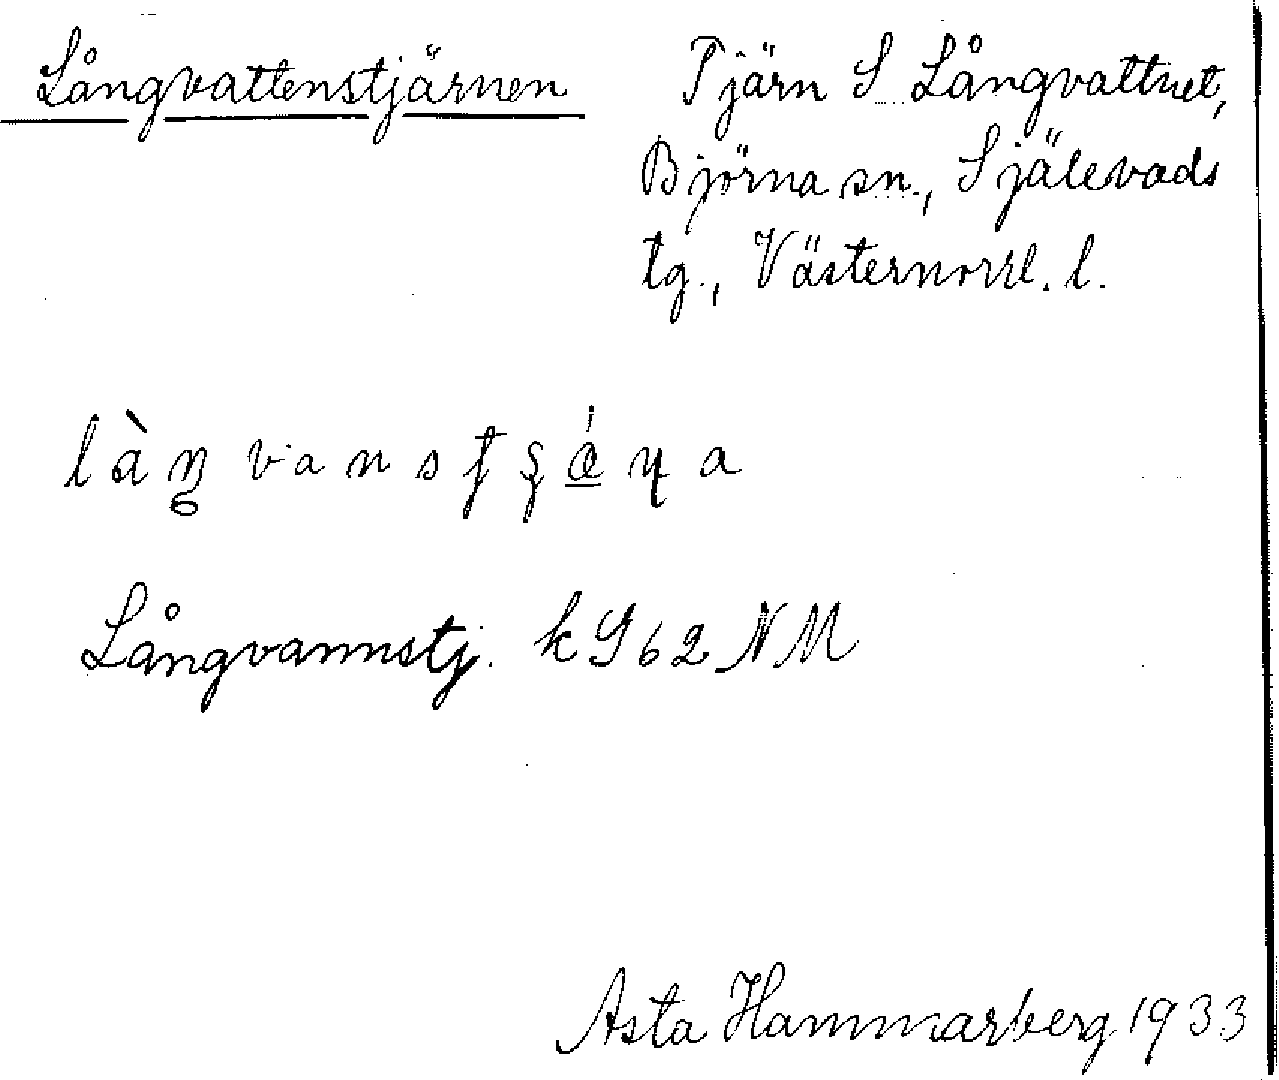 Långvattenstjärnen
Tjärn S Långvattnet,
Björna sn., Själevads
tg., Västernorrl. l.
Långvannstj. kG62NM
Asta Hammarberg 1933